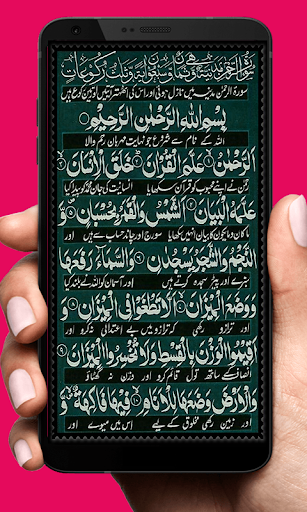 سُوْرَةُ الرَّحْمٰنِ مَدَنِيَّةٌ وَّهِيَ ثَمَانٌ وَّسَبْعُوْنَ اٰيَةً وَّثَلٰثُ رُكُوْعَاتٍ
سورۃ الرحمٰن مدینہ میں نازل ہوئی اور اس کی اٹھتر آیتیں اور تین رکوع ہیں
بِسْمِ اللّٰهِ الرَّحْمٰنِ الرَّحِيْمِ
اللہ کے نام سے شروع جو نہایت مہربان رحم والا
اَلرَّحْمٰنُ ۙ۱ عَلَّمَ الْقُرْاٰنَ ؕ۲ خَلَقَ الْاِنْسَانَ ۙ۳
رحمٰن نے اپنے محبوب کو قرآن سکھایا انسانیت کی جان محمد کو پیدا کیا
عَلَّمَهُ الْبَيَانَ ۴ اَلشَّمْسُ وَالْقَمَرُ بِحُسْبَانٍ ۵ وَّ
ما کان وما یکون کا بیان انہیں سکھایا سورج اور چاند حساب سے ہیں اور
النَّجْمُ وَالشَّجَرُ يَسْجُدٰنِ ۶ وَالسَّمَآءَ رَفَعَهَا
سبزے اور پیڑ سجدہ کرتے ہیں اور آسمان کو اللہ نے بلند کیا
وَوَضَعَ الْمِيْزَانَ ۙ۷ اَلَّا تَطْغَوْا فِي الْمِيْزَانِ ۸ وَ
اور ترازو رکھی کہ ترازو میں بے اعتدالی نہ کرو اور
اَقِيْمُوا الْوَزْنَ بِالْقِسْطِ وَلَا تُخْسِرُوا الْمِيْزَانَ ۹
انصاف کے ساتھ تول قائم کرو اور وزن نہ گھٹاؤ
وَالْاَرْضَ وَضَعَهَا لِلْاَنَامِ ۙ۱۰ فِيْهَا فَاكِهَةٌ ۙ وَّ
اور زمین رکھی مخلوق کے لیے اس میں میوے اور